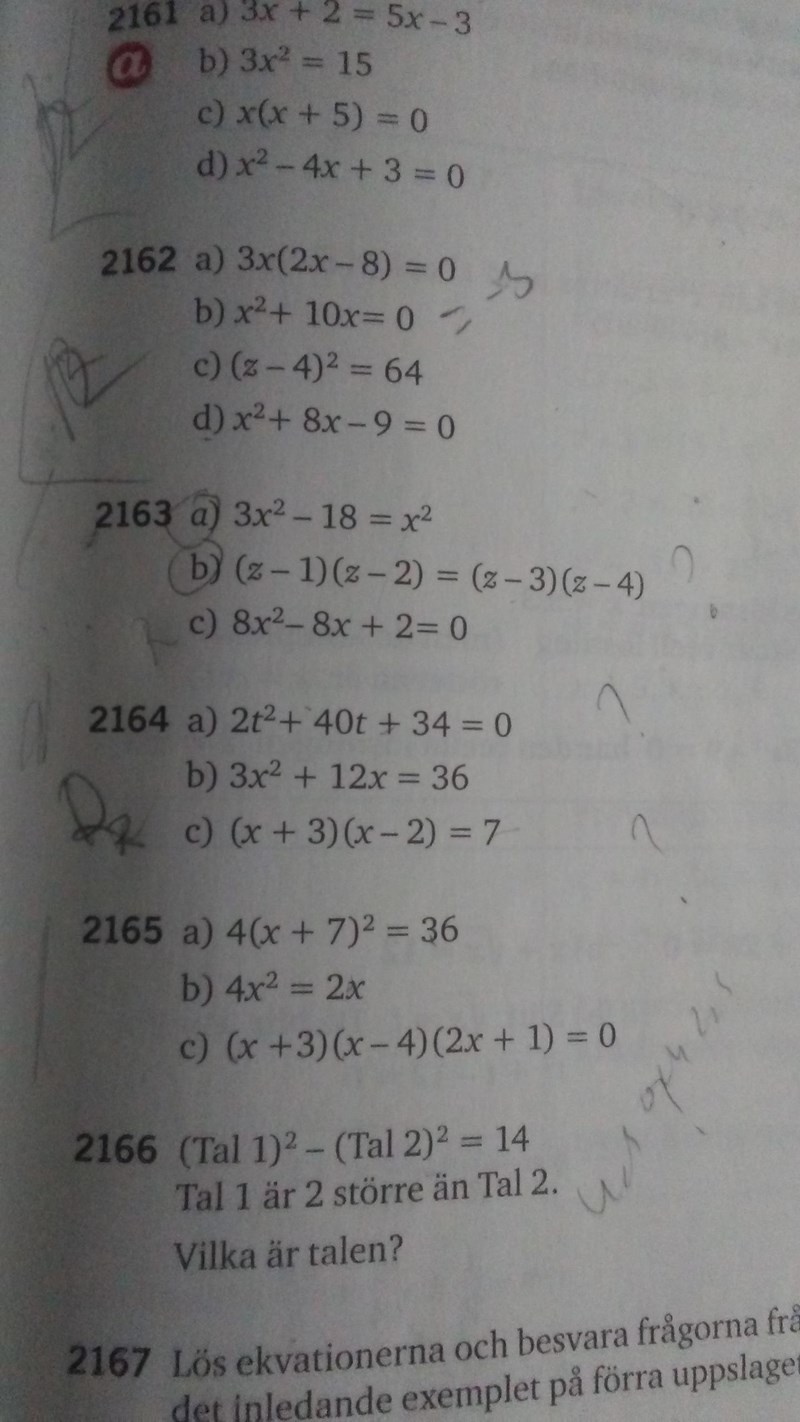 2161 a) 3x + 2 = 5x – 3
a b) 3x² = 15
c) x(x + 5) = 0
d) x² – 4x + 3 = 0
2162 a) 3x(2x – 8) = 0
b) x²+ 10x= 0
c) (z – 4)² = 64
d) x²+ 8x – 9 = 0
2163 a) 3x² – 18 = x²
b) (z – 1)(z – 2) = (z – 3)(z – 4)
c) 8x²– 8x + 2= 0
2164 a) 2t²+ 40t + 34 = 0
b) 3x² + 12x = 36
c) (x + 3)(x – 2) = 7
2165 a) 4(x + 7)² = 36
b) 4x² = 2x
c) (x +3)(x – 4)(2x + 1) = 0
2166 (Tal 1)² – (Tal 2)² = 14
Tal 1 är 2 större än Tal 2.
Vilka är talen?
2167 Lös ekvationerna och besvara frågorna frå
det inledande exemplet på förra uppslaget